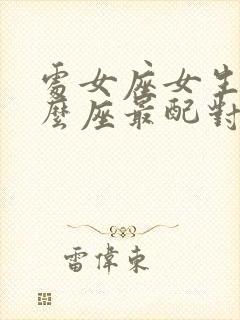 處女座女生
麼座最配對
雷偉東